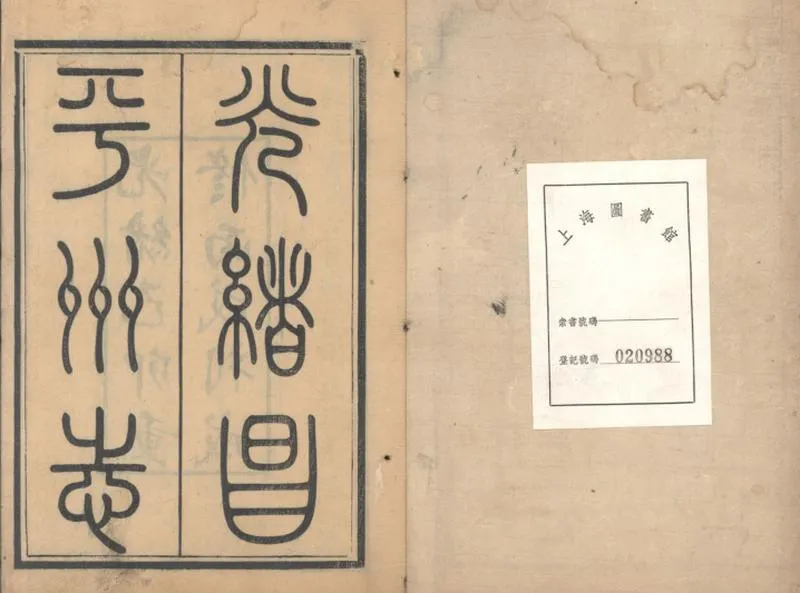 光緒昌
平州志
上海圖書館
索書號碼
登記號碼 020988